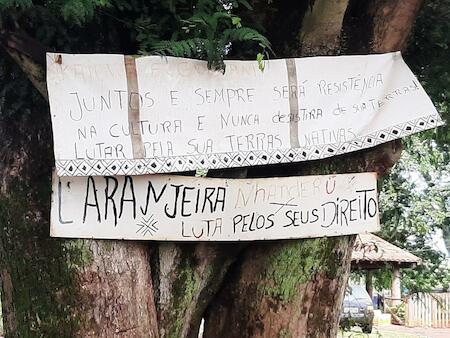 JUNTOS E SEMPRE SERÁ RESISTÊNCIA
NA CULTURA E NUNCA DESISTIRA DE SUA TERRAS!
LUTAR PELA SUA TERRAS NATIVAS
LARANJEIRA Nhanderu
LUTA PELOS SEUS DIREITO